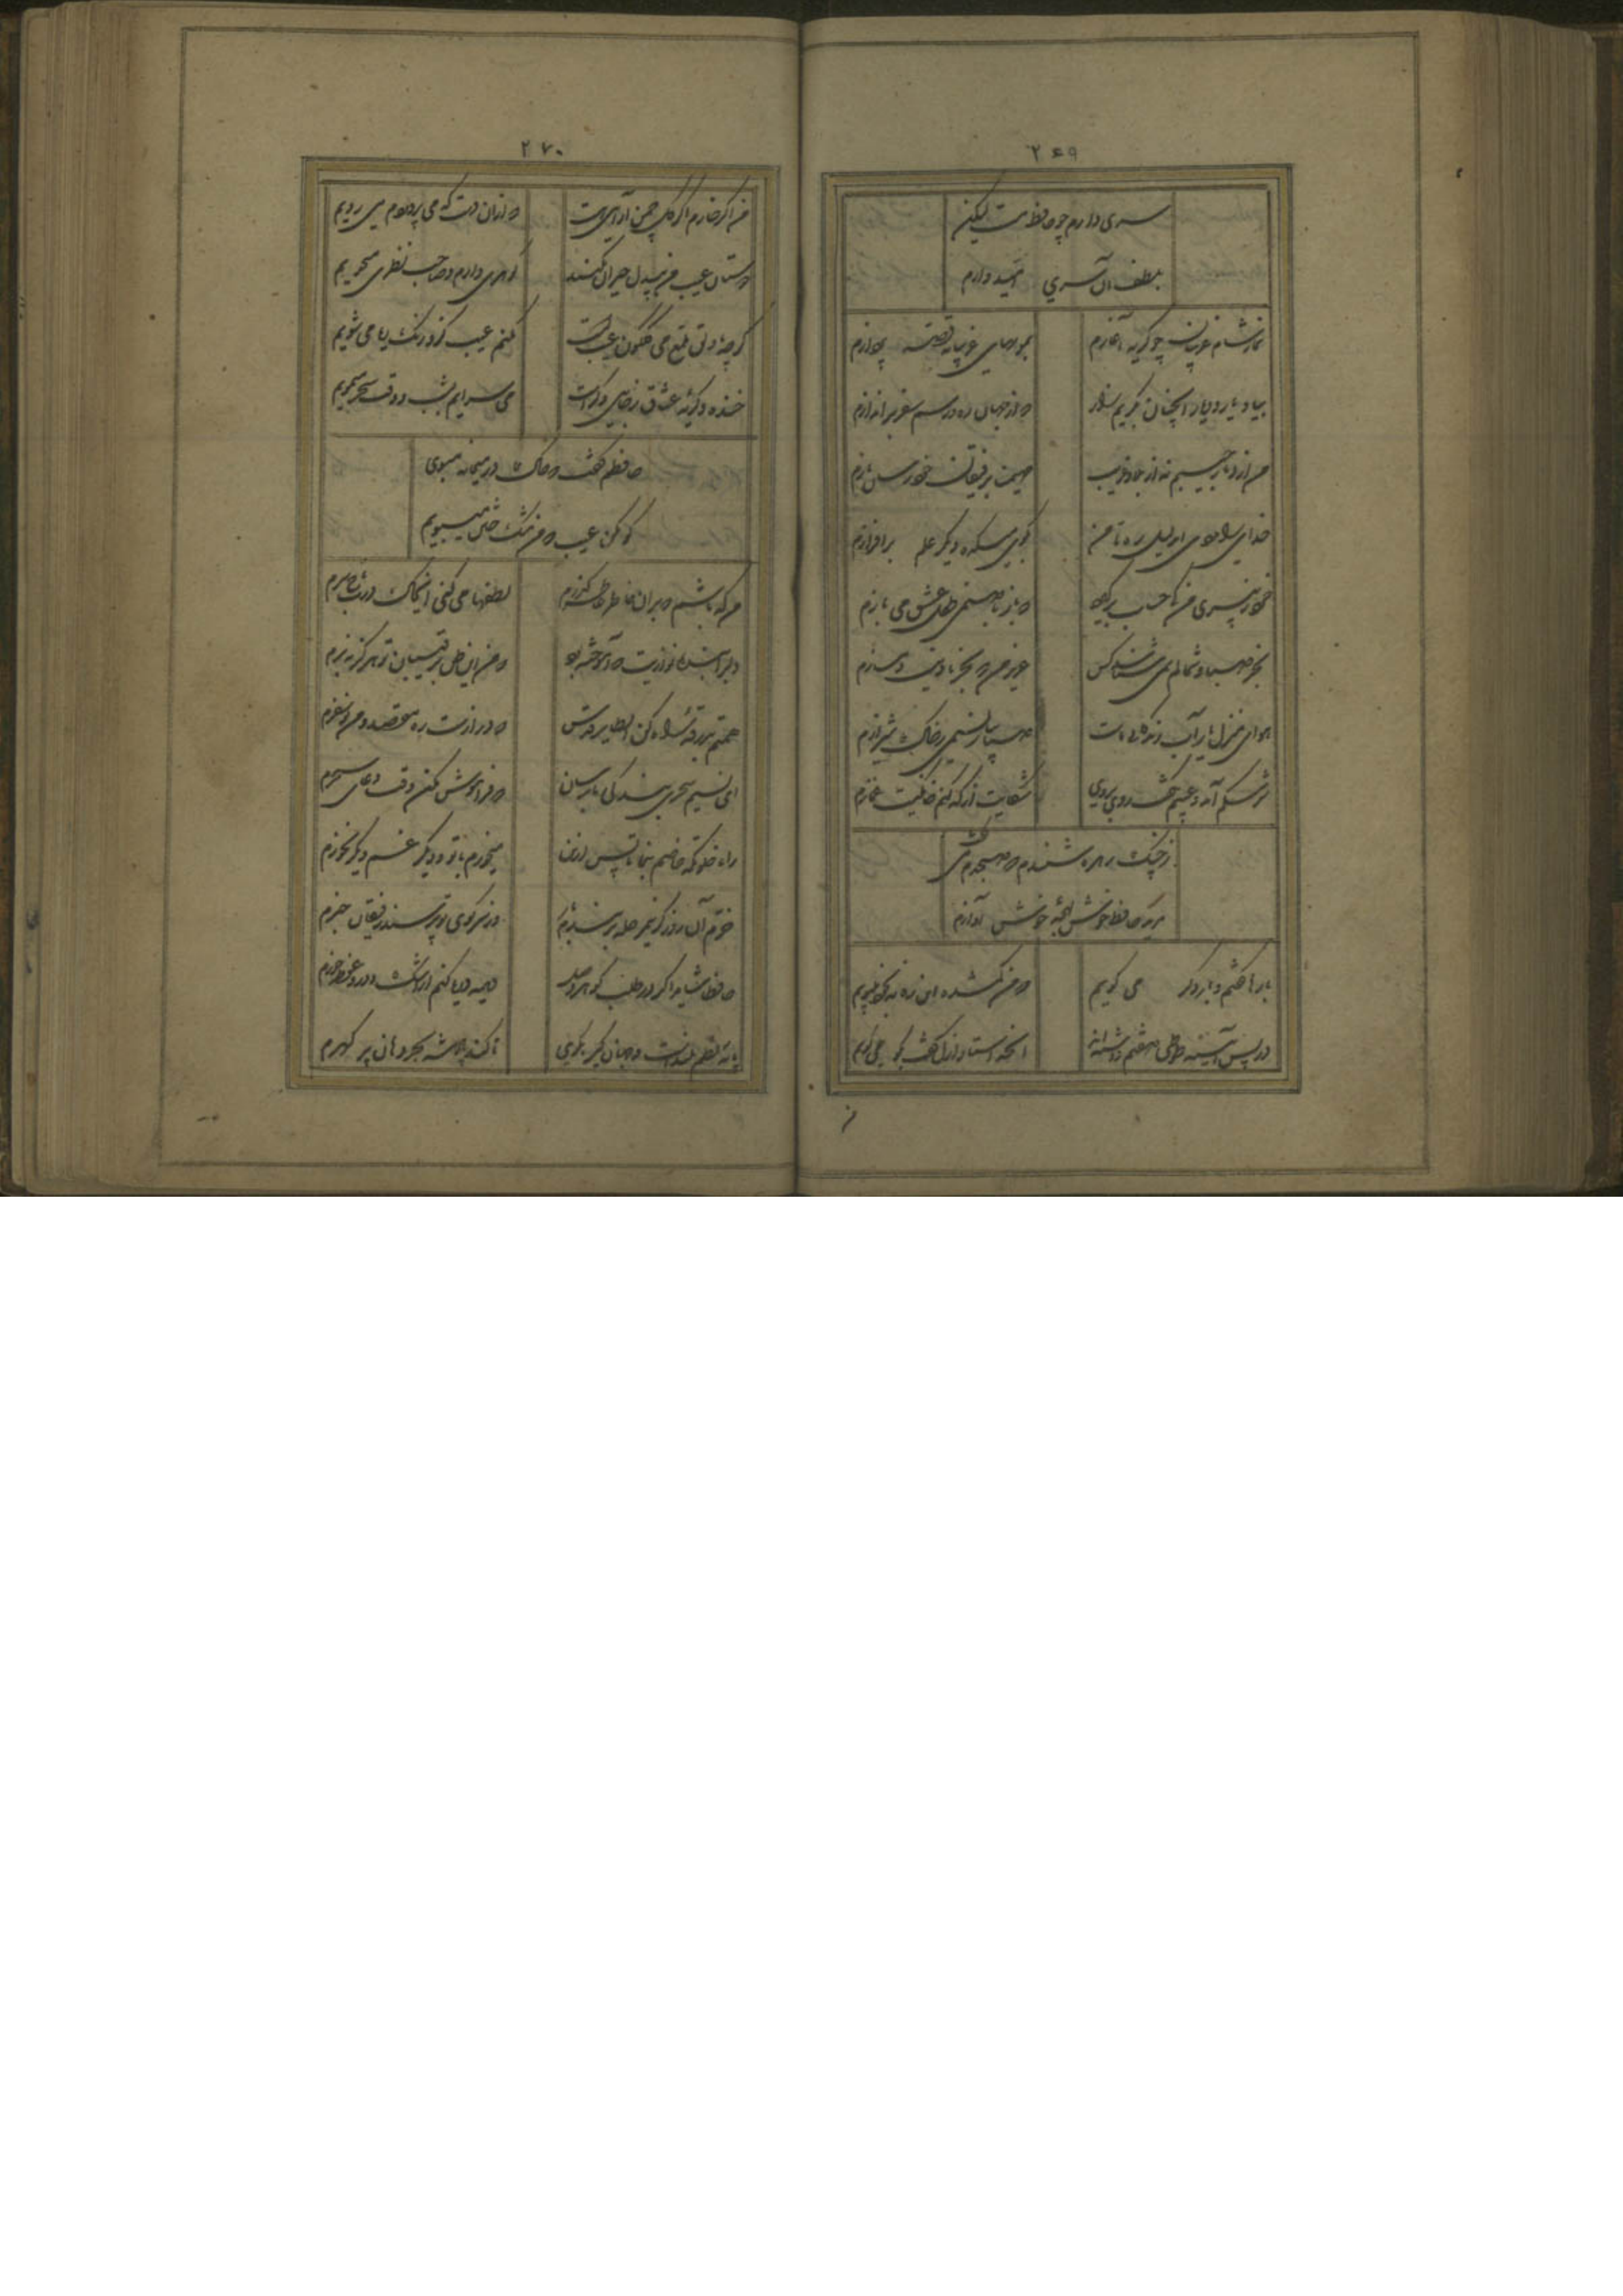 ۲۶۹
سری دارم چو حافظ مست لیکن
بلطف آن سری امید دارم
نماز شام غریبان چو گریه آغازم
بمویهای غریبانه قصه پردازم
بیاد یار و دیار آنچنان بگریم زار
که از جهان ره و رسم سفر براندازم
من از دیار حبیبم نه از بلاد غریب
مهیمنا برفیقان خود رسان بازم
خدایرا مددی ای دلیل ره تا من
بکوی میکده دیگر علم برافرازم
خرد ز پیری من کی حساب برگیرد
که باز با صنمی طفل عشق می بازم
بجز صبا و شمالم نمی شناسد کس
عزیز من که بجز باد نیست دمسازم
هوای منزل یار آب زندگانی ماست
صبا بیار نسیمی ز خاک شیرازم
سرشکم آمد و عیبم بگفت روی بروی
شکایت از که کنم خانگیست غمازم
ز چنگ زهره شنیدم که صبحدم می گفت
مرید حافظ خوش لهجهٔ خوش آوازم
بارها گفتم و بار دگر می گویم
که من گمشده این ره نه بخود میپویم
در پس آینه طوطی صفتم داشته اند
آنچه استاد ازل گفت بگو می گویم
من
۲۷۰
من اگر خارم اگر گل چمن آرایی هست
که ازان دست که می پروردم می رویم
دوستان عیب من بیدل حیران مکنید
گوهری دارم و صاحب نظری میجویم
گرچه با دلق ملمع می گلگون عیبست
مکنم عیب کزو رنگ ریا می شویم
خنده و گریهٔ عشاق ز جایی دگرست
می سرایم بشب و وقت سحر میمویم
حافظم گفت که خاک در میخانه مبوی
گو مکن عیب که من مشک ختن میبویم
من که باشم که بران خاطر عاطر گذرم
لطفها می کنی ای خاک درت تاج سرم
دلبرا بنده نوازیت که آموخت بگو
که من این ظن برقیبان تو هرگز نبرم
همتم بدرقهٔ راه کن ای طایر قدس
که درازست ره مقصد و من نوسفرم
ای نسیم سحری بندگی ما برسان
که فراموش مکن وقت دعای سحرم
راه خلوتگه خاصم بنما تا پس ازین
میخورم با تو و دیگر غم دیگر نخورم
خرم آن روز کزین مرحله بربندم
وز سر کوی تو پرسند رفیقان خبرم
حافظا شاید اگر در طلب گوهر وصل
دیده دریا کنم از اشک و در و غوطه خورم
پایهٔ نظم بلندست و جهان گیر بگوی
تا کند پادشه بحر دهان پر گهرم